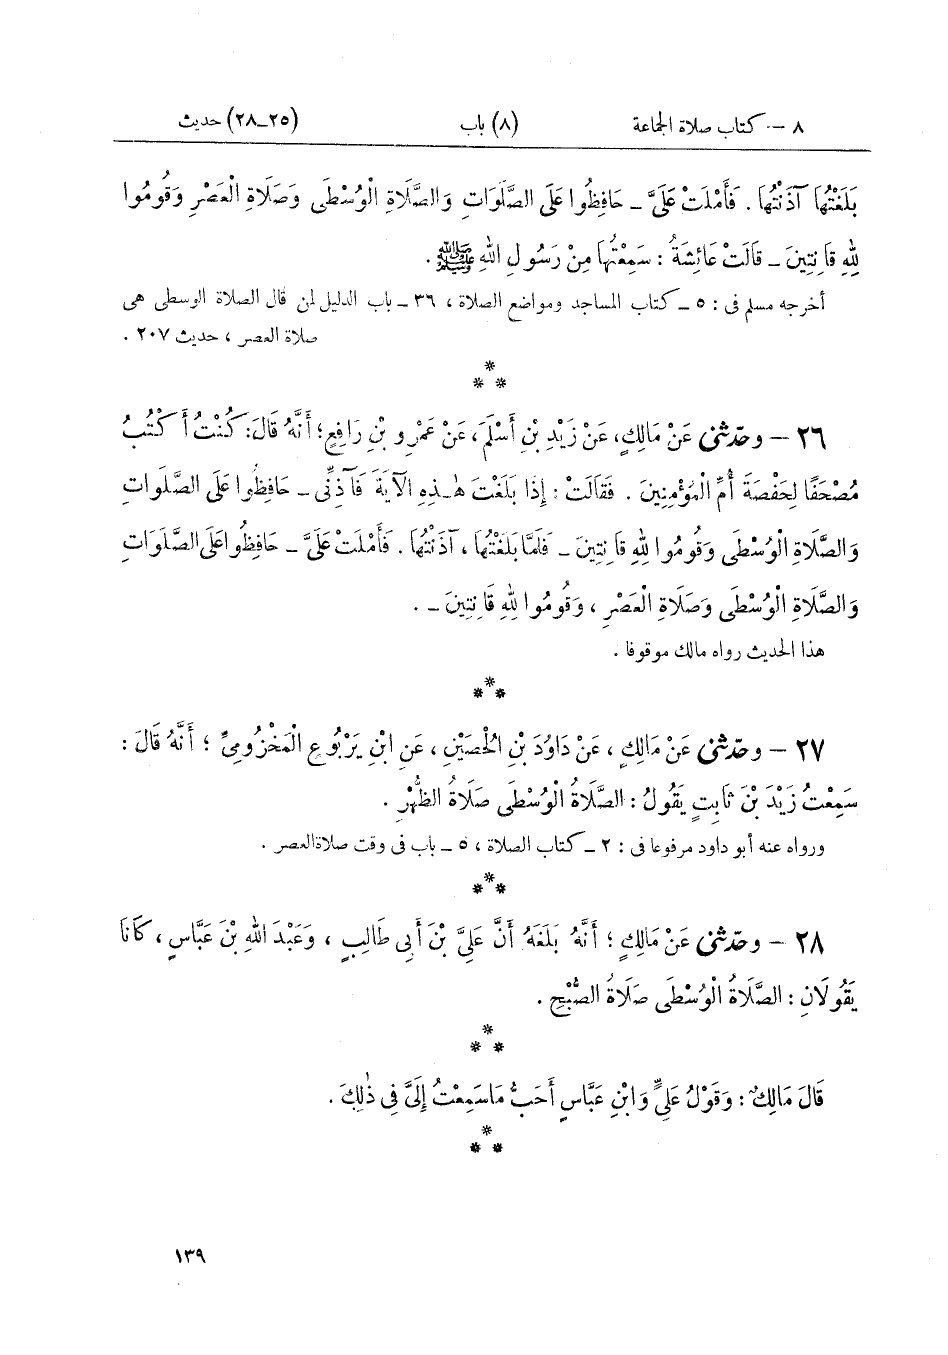 ٨ — كتاب صلاة الجماعة (٨) باب (٢٥_٢٨) حديث
بَلَغْتُهَا آذَنْتُهَا . فَأَمْلَتْ عَلَىَّ _ حَافِظُوا عَلَى الصَّلَوَاتِ وَالصَّلَاةِ الْوُسْطَى وَصَلَاةِ الْعَصْرِ وَقُومُوا
لِلّٰهِ قَانِتِينَ _ قَالَتْ عَائِشَةُ : سَمِعْتُهَا مِنْ رَسُولِ اللهِ ﷺ .
أخرجه مسلم فى : ٥ _ كتاب المساجد ومواضع الصلاة ، ٣٦ _ باب الدليل لمن قال الصلاة الوسطى هى
صلاة العصر ، حديث ٢٠٧ .
*
* *
٢٦ — وحدّثنى عَنْ مَالِكٍ، عَنْ زَيْدِ بْنِ أَسْلَمَ، عَنْ عَمْرِو بْنِ رَافِعٍ؛ أَنَّهُ قَالَ: كُنْتُ أَكْتُبُ
مُصْحَفًا لِحَفْصَةَ أُمِّ الْمُؤْمِنِينَ . فَقَالَتْ : إِذَا بَلَغْتَ هٰذِهِ الْآيَةَ فَآذِنِّى _ حَافِظُوا عَلَى الصَّلَوَاتِ
وَالصَّلَاةِ الْوُسْطَى وَقُومُوا لِلّٰهِ قَانِتِينَ _ فَلَمَّا بَلَغْتُهَا ، آذَنْتُهَا . فَأَمْلَتْ عَلَىَّ _ حَافِظُوا عَلَى الصَّلَوَاتِ
وَالصَّلَاةِ الْوُسْطَى وَصَلَاةِ الْعَصْرِ ، وَقُومُوا لِلّٰهِ قَانِتِينَ _ .
هذا الحديث رواه مالك موقوفا .
*
* *
٢٧ — وحدّثنى عَنْ مَالِكٍ ، عَنْ دَاوُدَ بْنِ الْحُصَيْنِ ، عَنِ ابْنِ يَرْبُوعٍ الْمَخْزُومِىِّ ؛ أَنَّهُ قَالَ :
سَمِعْتُ زَيْدَ بْنَ ثَابِتٍ يَقُولُ : الصَّلَاةُ الْوُسْطَى صَلَاةُ الظُّهْرِ .
ورواه عنه أبو داود مرفوعا فى : ٢ _ كتاب الصلاة ، ٥ _ باب فى وقت صلاة العصر .
*
* *
٢٨ — وحدّثنى عَنْ مَالِكٍ ؛ أَنَّهُ بَلَغَهُ أَنَّ عَلِىَّ بْنَ أَبِى طَالِبٍ ، وَعَبْدَ اللهِ بْنَ عَبَّاسٍ ، كَانَا
يَقُولَانِ : الصَّلَاةُ الْوُسْطَى صَلَاةُ الصُّبْحِ .
*
* *
قَالَ مَالِكٌ : وَقَوْلُ عَلِىٍّ وَابْنِ عَبَّاسٍ أَحَبُّ مَا سَمِعْتُ إِلَىَّ فِى ذٰلِكَ .
*
* *
١٣٩